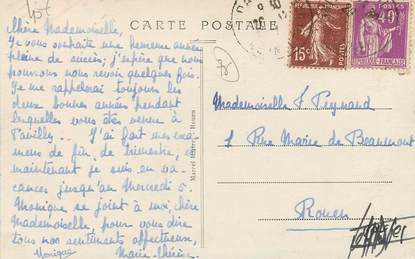 CARTE POSTALE
Chère Mademoiselle,
Je vous souhaite une heureuse année
pleine de succès; j'espère que nous
pourrons nous revoir quelques fois.
Je me rappelerai toujours les
deux bonnes années pendant
lesquelles vous êtes venue à
Pavilly... J'ai fait mes exa-
mens de fin de trimestre,
maintenant je suis en va-
cances jusqu'au Mercredi 5.
Monique se joint à moi, chère
Mademoiselle, pour vous dire
tous nos sentiments affectueux,
Monique Marie-Thérèse
Marcel Rouen
REPUBLIQUE FRANCAISE
15c POSTES
40c
Mademoiselle F Peynaud
1 Rue Marie de Beaumont
Rouen